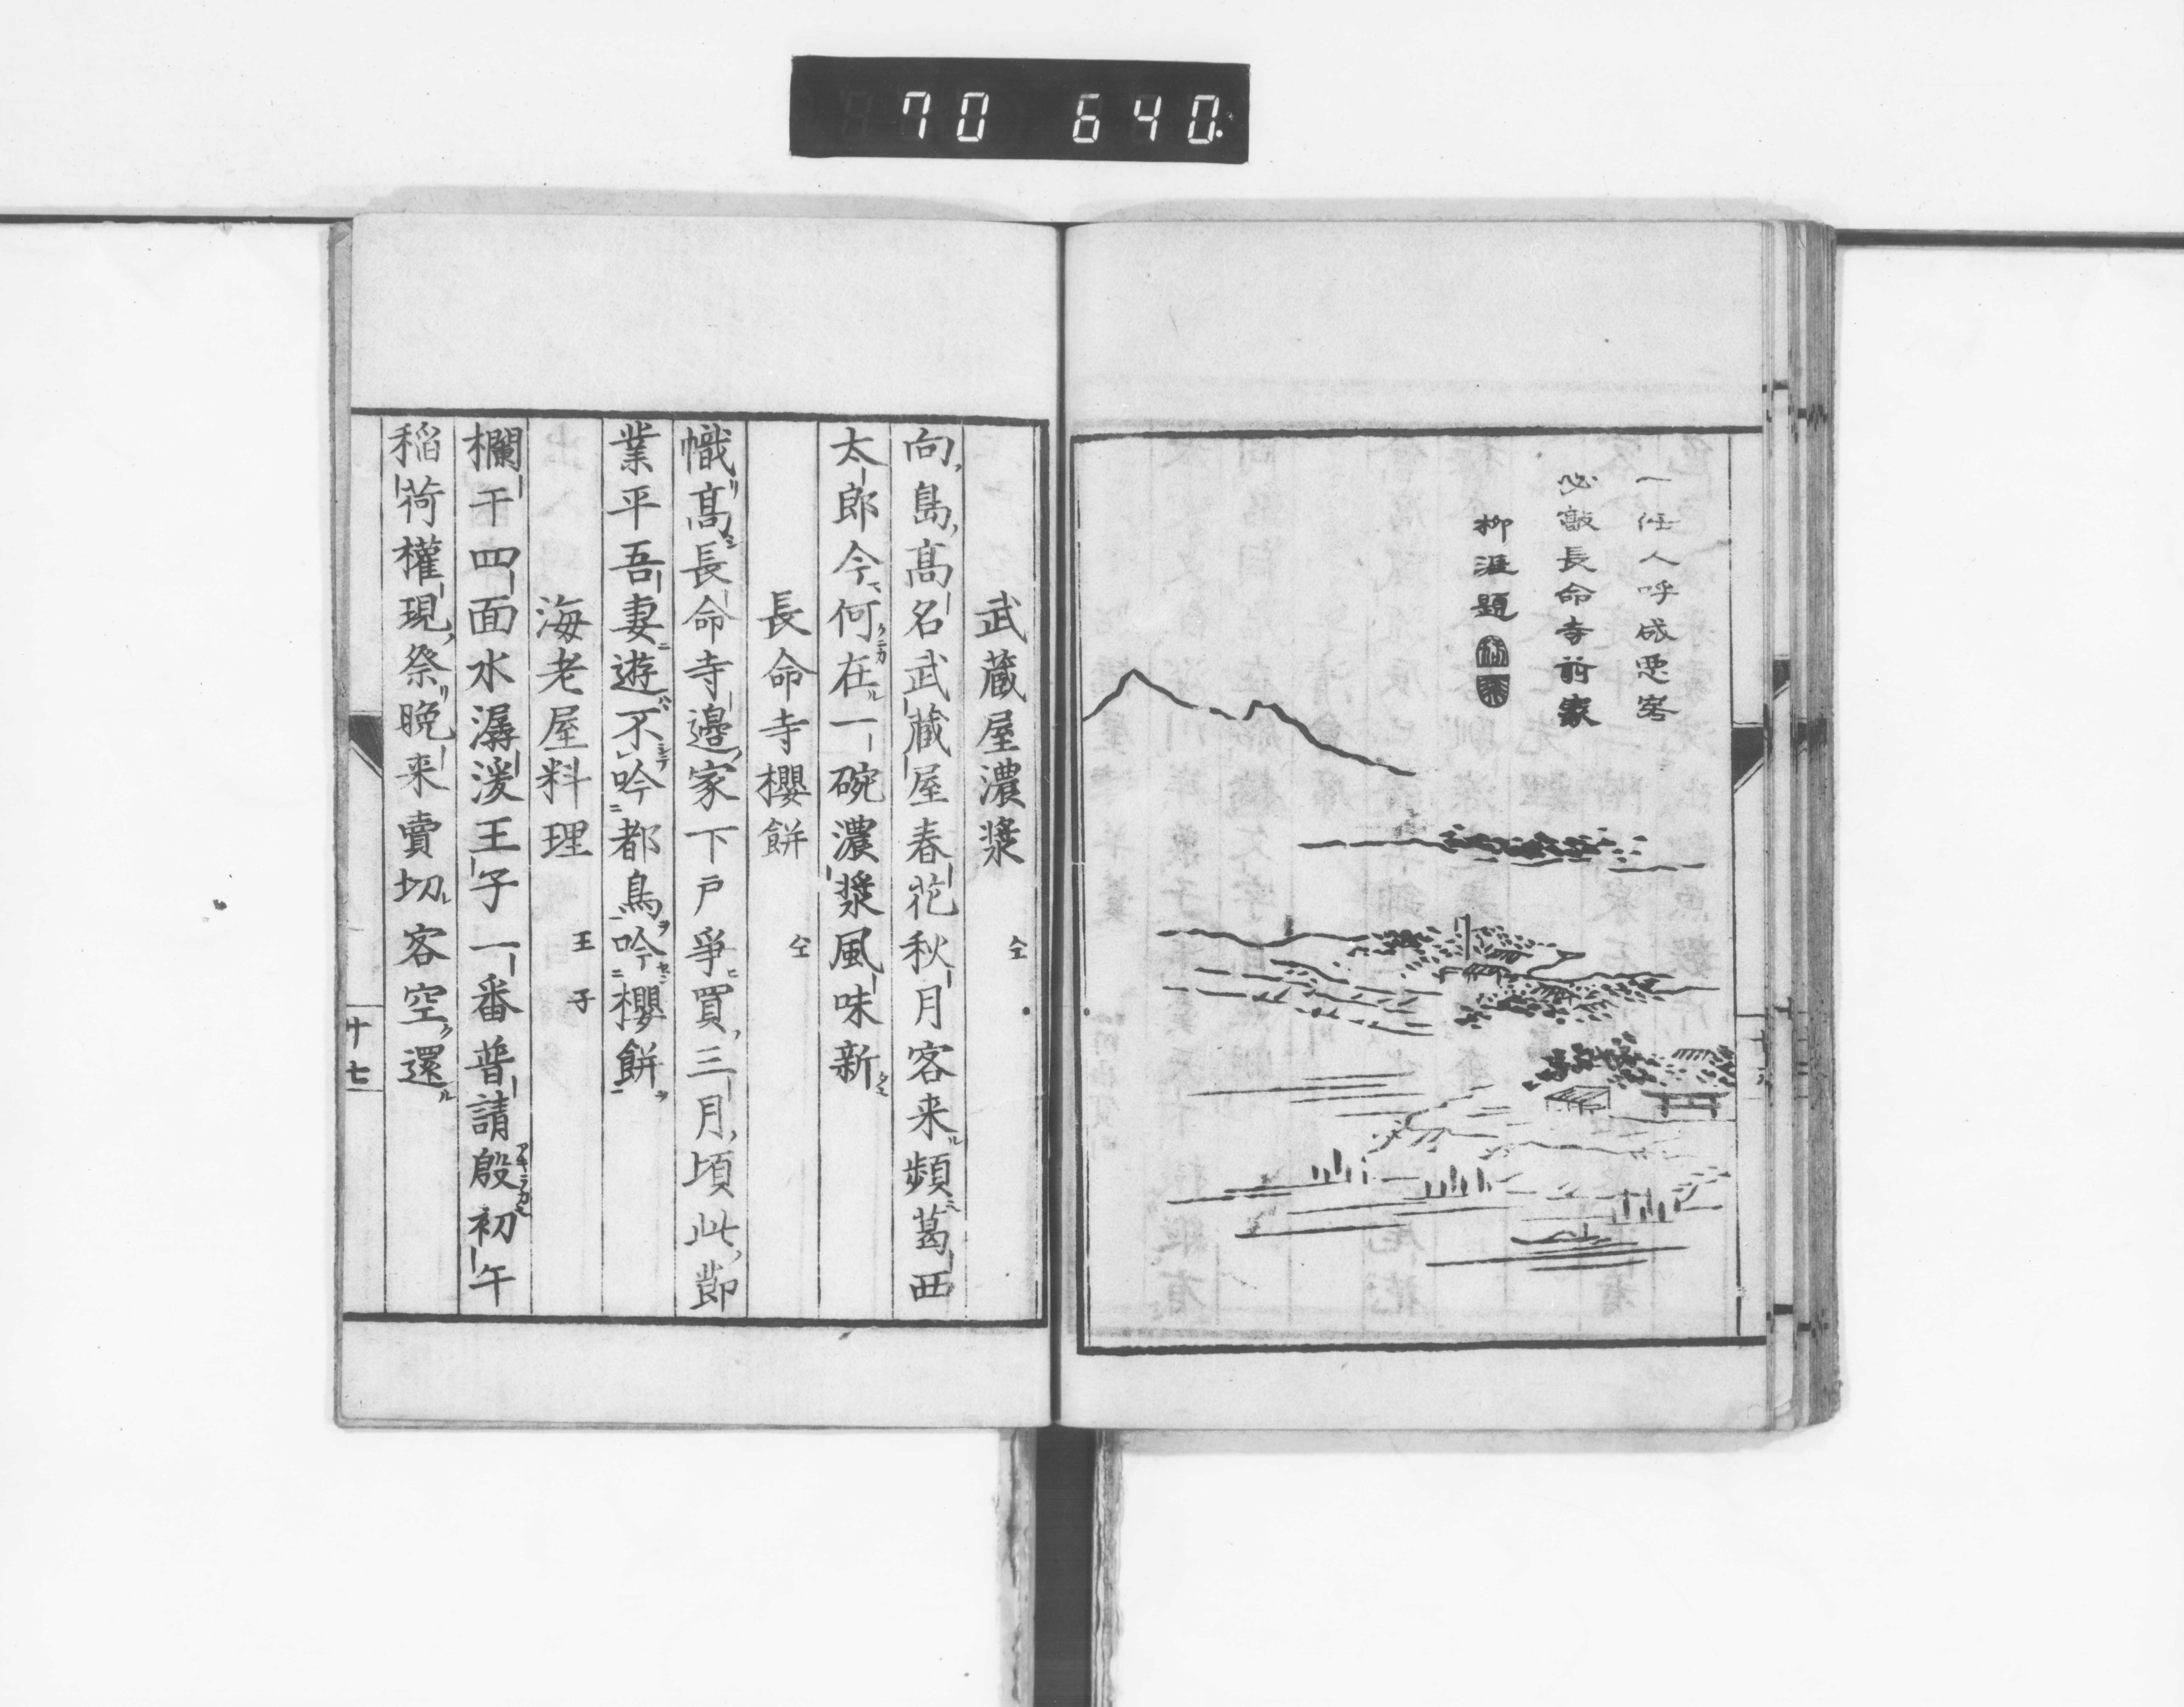 70 640
一任人呼盛惡客
必敲長命寺前家
柳涯題
武蔵屋濃漿 仝
向島高名武蔵屋春花秋月客来頻葛西
太郎今何在一碗濃漿風味新
長命寺櫻餅 仝
幟高長命寺邉家下戸爭買三月頃此節
業平吾妻遊不吟都鳥吟櫻餅
海老屋料理 王子
欄干四面水潺湲王子一番普請殷初午
稲荷權現祭晩来賣切客空還
十七